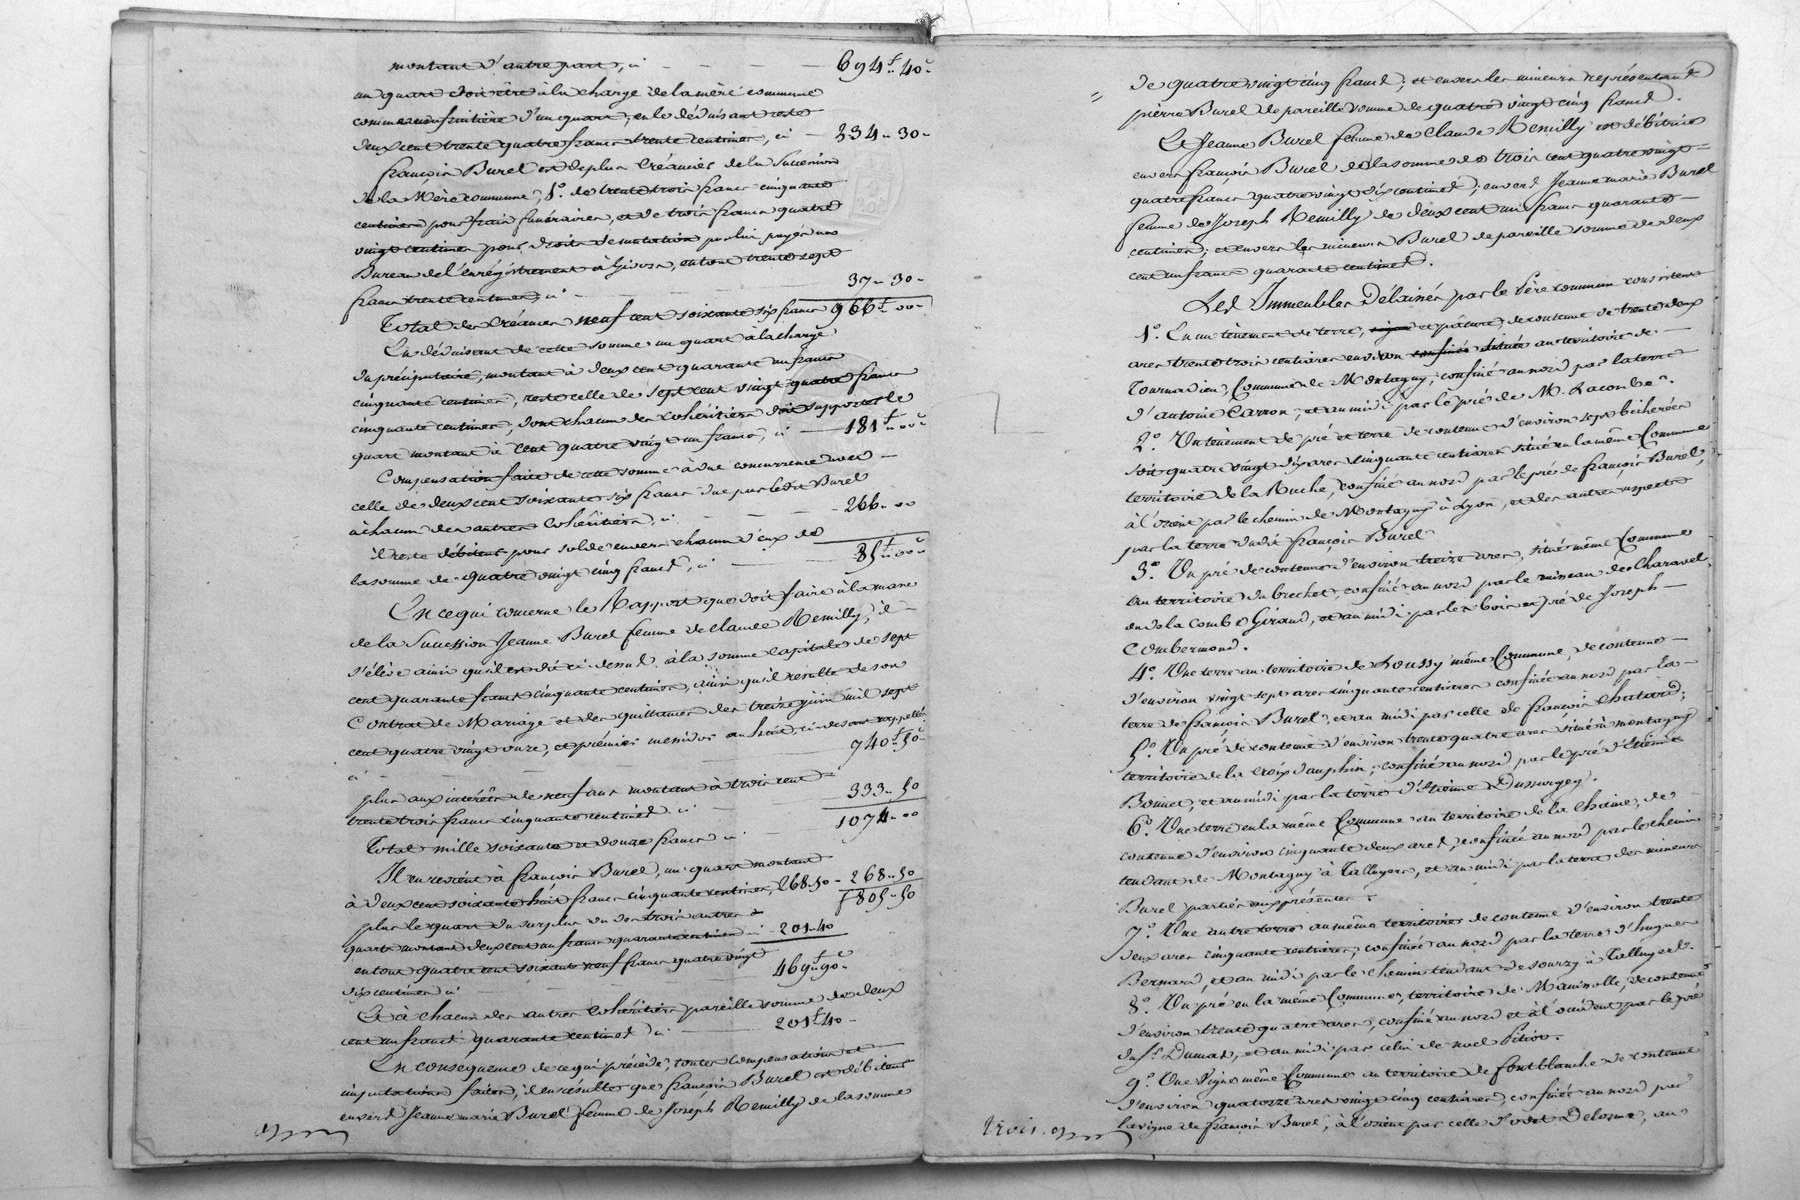 montant d'autre part, ci — — — 694f..40c
un quart doit être à la charge de la mère commune
comme usufruitière d'un quart, en le déduisant reste
deux cent trente quatre francs trente centimes, ci — 234..30..
françois Burel est de plus Créancier de la Succession
de la Mère commune, 1o. de trente trois francs cinquante
centimes pour frais funéraires, et de trois francs quatre
vingt centimes pour droits de mutation par lui payés au
Bureau de l'enrégistrement à Givors, en tout trente sept
francs trente centimes, ci — 37..30..
Total des Créances neuf cent soixante six francs 966f..00..
En déduisant de cette somme un quart à la charge
du préciputaire, montant à deux cent quarante un francs
cinquante centimes, reste celle de sept cent vingt quatre francs
cinquante centimes, dont chacun des cohéritiers doit supporter le
quart montant à Cent quatre vingt un francs, ci — 181f..00c
Compensation faite de cette somme à due concurrence avec —
celle de deux cent soixante six francs due par ledit Burel
à chacun des autres Cohéritiers, ci — — — 266..00
il reste débiteur pour solde envers chacun d'eux de
la somme de quatre vingt cinq francs, ci — — 85f..00c
En ce qui concerne le Rapport que doit faire à la masse
de la Succession Jeanne Burel femme de Claude Remilly, il —
s'élève ainsi qu'il est dit ci-dessus à la somme capitale de sept
cent quarante francs cinquante centimes, ainsi qu'il résulte de son
Contrat de Mariage et des quittances des treize juin mil sept
cent quatre vingt onze, et premier messidor an huit, ci-dessus rappellés
ci — — — 740f..50c
plus aux intérêts de neuf ans montant à trois cent
trente trois francs cinquante centimes ci — 333..50
Total mille soixante et douze francs ci — 1074..00
Il en revient à françois Burel, un quart montant
à deux cent soixante huit francs cinquante centimes, 268..50 — 268..50
plus le quart du surplus ou des trois autres f 805..50
quarts montant deux cent un francs quarante centimes ci 201..40
en tout quatre cent soixante neuf francs quatre vingt
dix centimes ci — — — 469f..90c
Et à chacun des autres Cohéritiers pareille somme de deux
cent un francs quarante centimes ci — 201f..40..
En conséquence de ce qui précède, toutes Compensations et
imputations faites, il en résulte que françois Burel est débiteur
envers Jeanne marie Burel femme de Joseph Remilly de la somme
de quatre vingt cinq francs; et envers les mineurs représentant
pierre Burel de pareille somme de quatre vingt cinq francs.
Et Jeanne Burel femme de Claude Remilly est débitrice
envers françois Burel de la somme de trois cent quatre vingt
quatre francs quatre vingt dix centimes; envers Jeanne marie Burel
femme de Joseph Remilly de deux cent un francs quarante —
centimes; et envers les mineurs Burel de pareille somme de deux
cent un francs quarante centimes.
Les Immeubles délaissés par le Père commun consistent
1o. En un tènement de terre, et pature, de contenue de trente deux
ares trente trois centiares environ confiné située au territoire de —
Tournadieu, Commune de Montagny, confiné au nord par la terre
d'antoine Carron, et au midi par le pré de M. Lacombe.
2o. Un tènement de pré et terre de contenue d'environ sept bicherées
soit quatre vingt dix ares cinquante centiares situé en la même Commune
territoire de la Ruche, confiné au nord par le pré de françois Burel,
à l'orient par le chemin de Montagny à Lyon, et des autres aspects
par la terre dudit françois Burel
3o. Un pré de contenue d'environ treize ares, situé même Commune
au territoire du brechet, confiné au nord par le ruisseau de Charavel,
ou de la Combe Giraud, et au midi par les bois et pré de Joseph —
Combermond.
4o. Une terre au territoire de Soussy même Commune, de contenue —
d'environ vingt sept ares cinquante centiares confinée au nord par la —
terre de françois Burel, et au midi par celle de françois Chatard;
5o. Un pré de contenue d'environ trente quatre ares situé à montagny
territoire de la Croix dauphin, confiné au nord par le pré d'Etienne
Bonnet, et au midi par la terre d'Etienne Dussurgey.
6o. Une terre en la même Commune au territoire de la Chaine, de —
contenue d'environ cinquante deux ares, confinée au nord par le chemin
tendant de Montagny à Talluyers, et au midi par la terre des mineurs
Burel parties présentes.
7o. Une autre terre au même territoire de contenue d'environ trente
deux ares cinquante centiares, confinée au nord par la terre d'hugues
Bernard, et au midi par le chemin tendant de sourzy à Talluyers.
8o. Un pré en la même Commune, territoire de Maninolle, de contenue
d'environ trente quatre ares, confiné au nord et à l'occident par le pré
du Sr. Dumas, et au midi par celui de noel Pitiot.
9o. Une Vigne même Commune au territoire de fontblanche de contenue
d'environ quatorze ares vingt cinq centiares, confinée au nord par
la vigne de françois Burel, à l'orient par celle d' Delorme, au
trois.